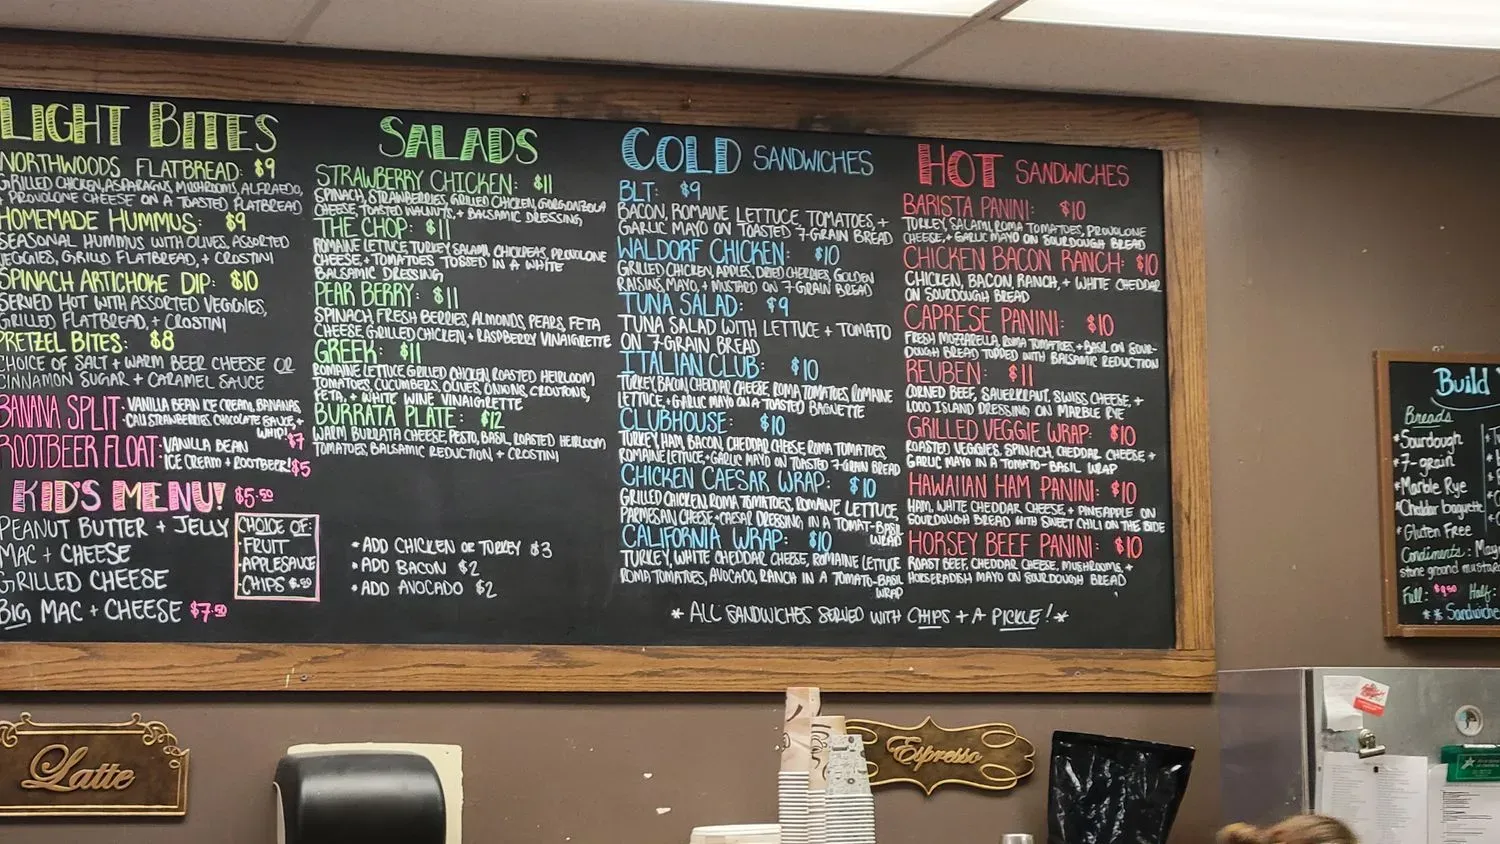 LIGHT BITES
NORTHWOODS FLATBREAD: $9
GRILLED CHICKEN, ASPARAGUS, MUSHROOMS, ALFRAEDO,
+ PROVOLONE CHEESE ON A TOASTED FLATBREAD
HOMEMADE HUMMUS: $9
SEASONAL HUMMUS WITH OLIVES, ASSORTED
VEGGIES, GRILLD FLATBREAD, + CROSTINI
SPINACH ARTICHOKE DIP: $10
SERVED HOT WITH ASSORTED VEGGIES,
GRILLED FLATBREAD, + CROSTINI
PRETZEL BITES: $8
CHOICE OF SALT + WARM BEER CHEESE OR
CINNAMON SUGAR + CARAMEL SAUCE
BANANA SPLIT · VANILLA BEAN ICE CREAM, BANANAS,
STRAWBERRIES, CHOCOLATE SAUCE, +
WHIP! $7
ROOTBEER FLOAT: VANILLA BEAN
ICE CREAM + ROOTBEER! $5
KID'S MENU! $5.50
PEANUT BUTTER + JELLY
MAC + CHEESE
GRILLED CHEESE
BIG MAC + CHEESE $7.50
CHOICE OF:
· FRUIT
· APPLESAUCE
· CHIPS $.50
SALADS
STRAWBERRY CHICKEN: $11
SPINACH, STRAWBERRIES, GRILLED CHICKEN, GORGONZOLA
CHEESE, TOASTED WALNUTS, + BALSAMIC DRESSING
THE CHOP: $11
ROMAINE LETTUCE TURKEY, SALAMI, CHICKPEAS, PROVOLONE
CHEESE, + TOMATOES TOSSED IN A WHITE
BALSAMIC DRESSING
PEAR BERRY: $11
SPINACH, FRESH BERRIES, ALMONDS, PEARS, FETA
CHEESE, GRILLED CHICKEN, + RASPBERRY VINAIGRETTE
GREEK: $11
ROMAINE LETTUCE GRILLED CHICKEN ROASTED HEIRLOOM
TOMATOES, CUCUMBERS, OLIVES, ONIONS, CROUTONS,
FETA, + WHITE WINE VINAIGRETTE
BURRATA PLATE: $12
WARM BURRATA CHEESE, PESTO, BASIL, ROASTED HEIRLOOM
TOMATOES, BALSAMIC REDUCTION + CROSTINI
* ADD CHICKEN OR TURKEY $3
* ADD BACON $2
* ADD AVOCADO $2
COLD SANDWICHES
BLT: $9
BACON, ROMAINE LETTUCE, TOMATOES, +
GARLIC MAYO ON TOASTED 7-GRAIN BREAD
WALDORF CHICKEN: $10
GRILLED CHICKEN, APPLES, DRIED CHERRIES, GOLDEN
RAISINS, MAYO, + MUSTARD ON 7-GRAIN BREAD
TUNA SALAD: $9
TUNA SALAD WITH LETTUCE + TOMATO
ON 7-GRAIN BREAD
ITALIAN CLUB: $10
TURKEY, BACON, CHEDDAR CHEESE, ROMA TOMATOES ROMAINE
LETTUCE, + GARLIC MAYO ON A TOASTED BAGUETTE
CLUBHOUSE: $10
TURKEY, HAM, BACON, CHEDDAR CHEESE, ROMA TOMATOES,
ROMAINE LETTUCE, + GARLIC MAYO ON TOASTED 7-GRAIN BREAD
CHICKEN CAESAR WRAP: $10
GRILLED CHICKEN, ROMA TOMATOES, ROMAINE LETTUCE,
PARMESAN CHEESE, + CAESAR DRESSING IN A TOMAT-BASIL
WRAP
CALIFORNIA WRAP: $10
TURKEY, WHITE CHEDDAR CHEESE, ROMAINE LETTUCE
ROMA TOMATOES, AVOCADO, RANCH IN A TOMATO-BASIL
WRAP
HOT SANDWICHES
BARISTA PANINI: $10
TURKEY, SALAMI, ROMA TOMATOES, PROVOLONE
CHEESE, + GARLIC MAYO ON SOURDOUGH BREAD
CHICKEN BACON RANCH: $10
CHICKEN, BACON RANCH, + WHITE CHEDDAR
ON SOURDOUGH BREAD
CAPRESE PANINI: $10
FRESH MOZZARELLA, ROMA TOMATOES, + BASIL ON SOUR-
DOUGH BREAD TOPPED WITH BALSAMIC REDUCTION
REUBEN: $11
CORNED BEEF, SAUERKRAUT, SWISS CHEESE, +
1000 ISLAND DRESSING ON MARBLE RYE
GRILLED VEGGIE WRAP: $10
ROASTED VEGGIES, SPINACH, CHEDDAR CHEESE +
GARLIC MAYO IN A TOMATO-BASIL WRAP
HAWAIIAN HAM PANINI: $10
HAM, WHITE CHEDDAR CHEESE, + PINEAPPLE ON
SOURDOUGH BREAD WITH SWEET CHILI ON THE SIDE
HORSEY BEEF PANINI: $10
ROAST BEEF, CHEDDAR CHEESE, MUSHROOMS, +
HORSERADISH MAYO ON SOURDOUGH BREAD
* ALL SANDWICHES SERVED WITH CHIPS + A PICKLE! *
Build
Breads
* Sourdough
* 7-grain
* Marble Rye
* Cheddar baguette
* Gluten Free
Condiments: Mayo
stone ground mustard
Full: $9.50 Half:
** Sandwiche
Latte
Espresso